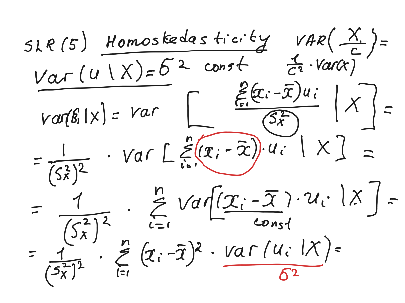 SLR (5) Homoskedasticity VAR(X/c)=
Var(u|X)=б² const 1/c² · Var(X)
var(β̂₁|x) = var [ Σᵢ₌₁ⁿ(xᵢ-x̄)uᵢ / Sₓ² | X ] =
= 1/(Sₓ²)² · var [ Σᵢ₌₁ⁿ (xᵢ - x̄) · uᵢ | X ] =
= 1/(Sₓ²)² · Σᵢ₌₁ⁿ Var[(xᵢ - x̄) · uᵢ | X] =
const
= 1/(Sₓ²)² · Σᵢ₌₁ⁿ (xᵢ-x̄)² · var(uᵢ | X) =
б²